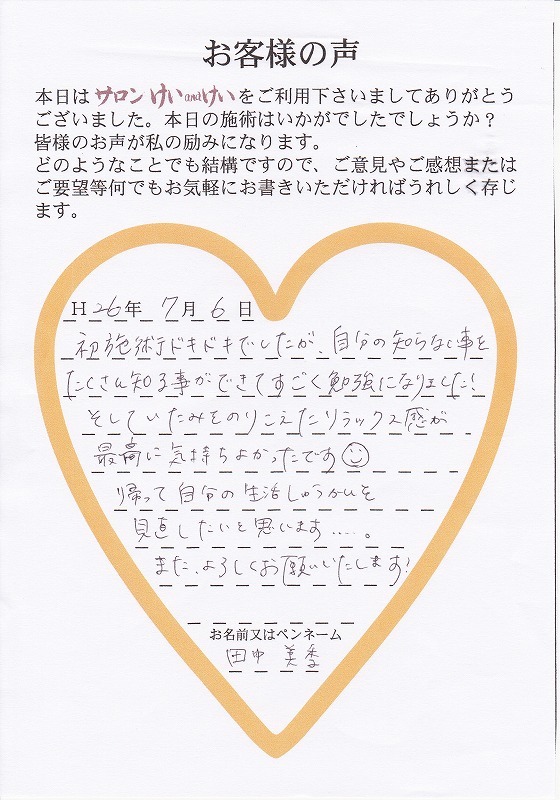 お客様の声
本日は サロン けい and けい をご利用下さいましてありがとう
ございました。本日の施術はいかがでしたでしょうか？
皆様のお声が私の励みになります。
どのようなことでも結構ですので、ご意見やご感想または
ご要望等何でもお気軽にお書きいただければうれしく存じ
ます。
H 26年 7月 6日
初施術ドキドキでしたが、自分の知らない事を
たくさん知る事ができてすごく勉強になりました！
そしていたみをのりこえたリラックス感が
最高に気持ちよかったです☺
帰って自分の生活しゅうかんを
見直したいと思います……。
また、よろしくお願いいたします！
お名前又はペンネーム
田中 美季